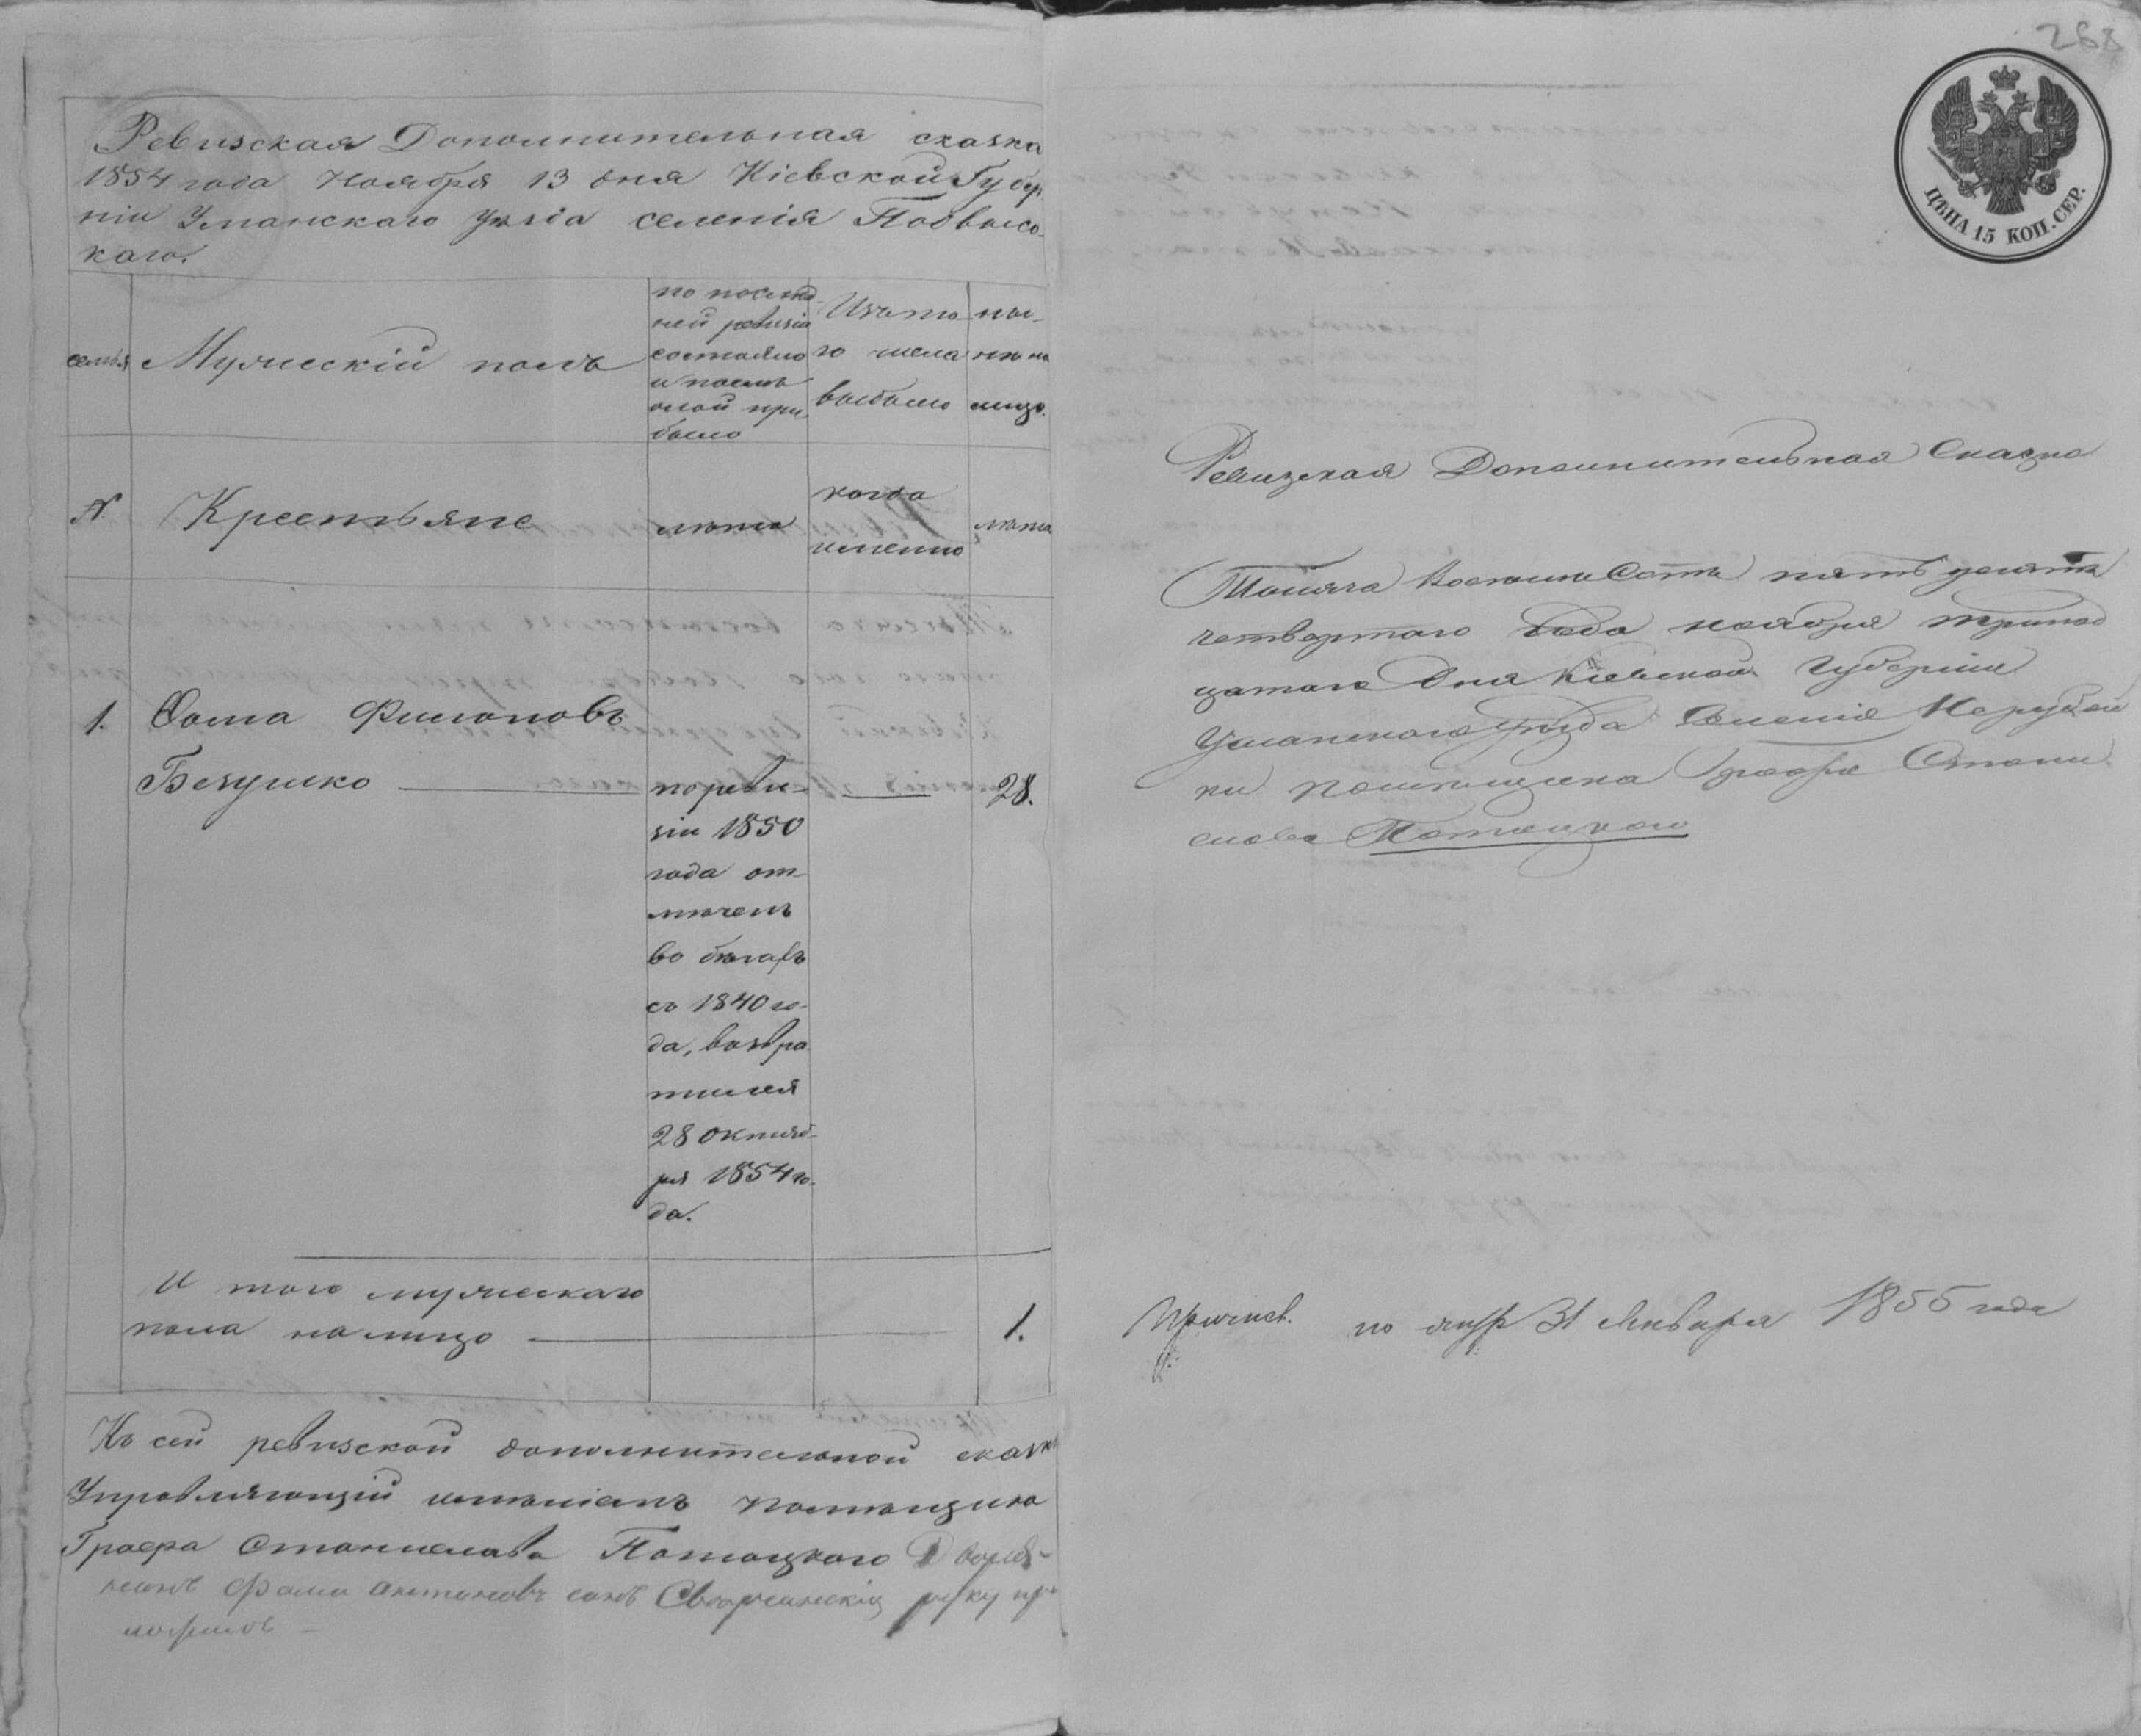 Ревизская Дополнительная сказка
1854 года Ноября 13 дня Кіевской Губер
ніи Уманскаго уѣзда селенія Подвысо-
каго.
семья
Мужескій полъ
по послѣд-
ней ревизіи
состояло
и послѣ
оной при-
было
Изъ то-
го числа
выбыло
ны-
нѣ на
лицо.
N.
Крестьяне
лѣта
когда
именно
лѣта
1. Фома Филоновъ
Безушко
по реви-
зіи 1850
года от-
мѣченъ
во бѣгахъ
съ 1840 го-
да, возвра
тился
28 октяб-
ря 1854 го-
да.
28.
И того мужескаго
пола на лицо 1.
Къ сей ревизской дополнительной сказк
Управляющій имѣніемъ помѣщика
Графа Станислава Потоцкого Дворя-
нинъ Фома Антоновъ сынъ руку при
ложилъ
268
ЦѢНА 15 КОП. СЕР.
Ревизская Дополнительная Сказка
Тысяча восемьсотъ пятьдесятъ
четвертого года ноября тринад
цатого дня Кіевской губерніи
Уманского уѣзда Селенія
ки помѣщика Графа Стани
слава Потоцкого
Причисл. по 31 Января 1855 года